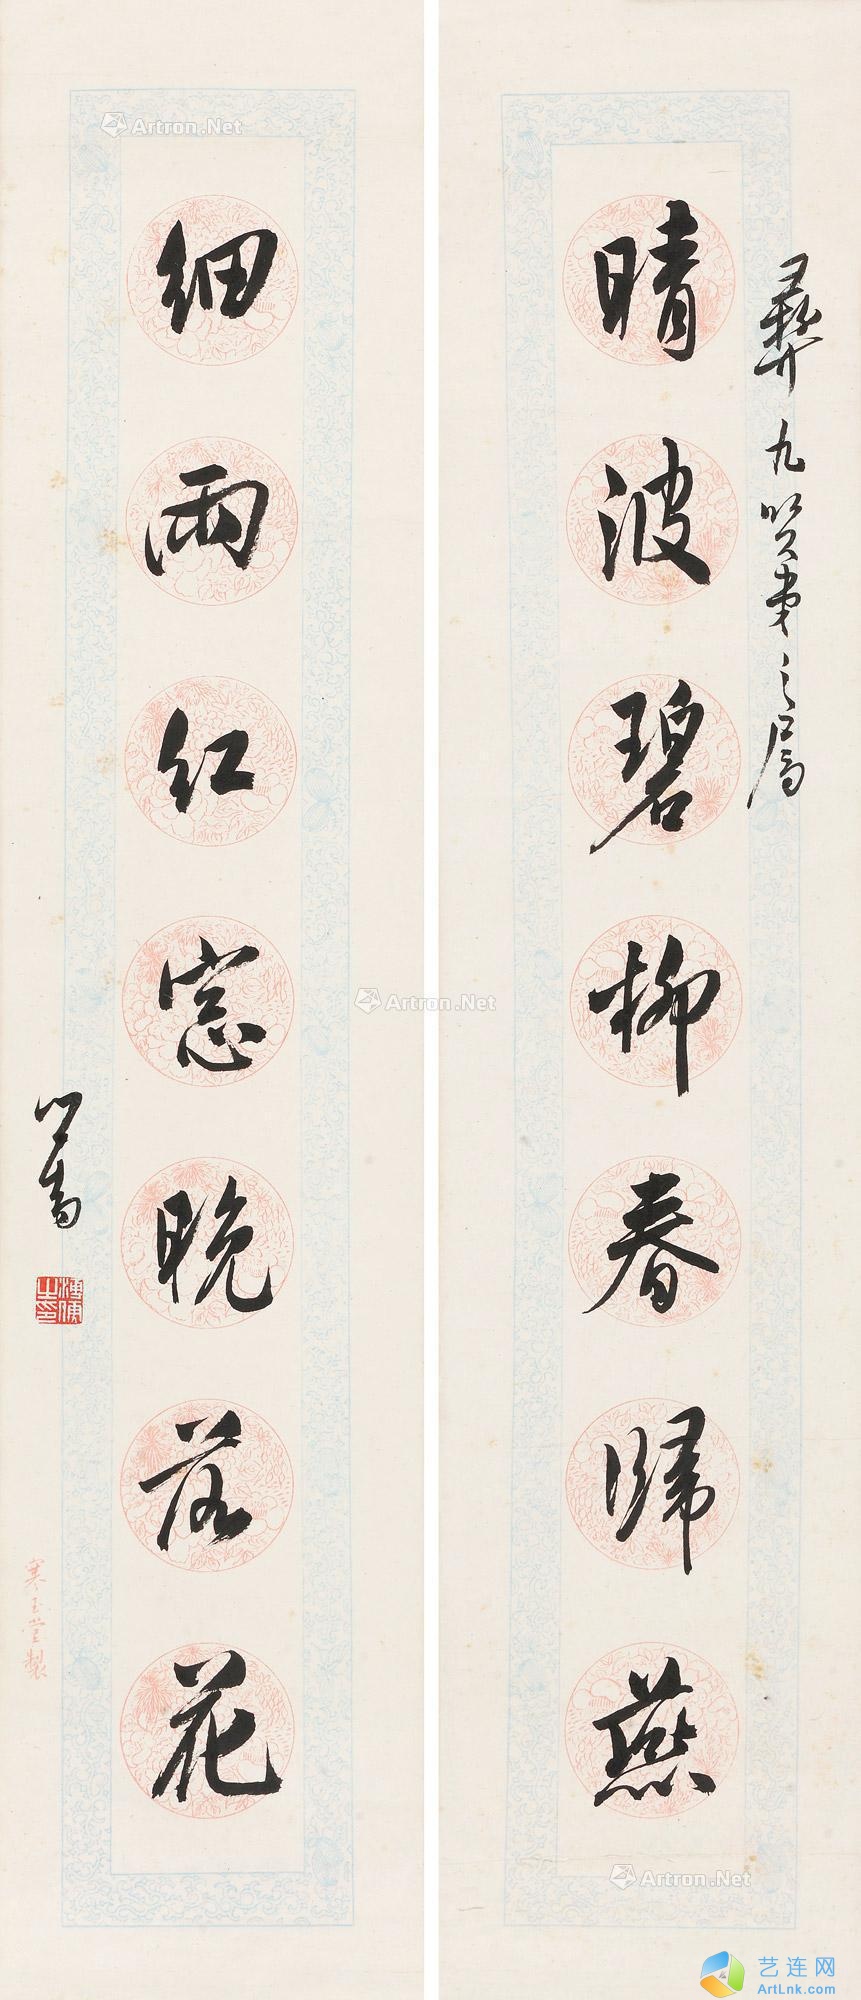 彝九贤弟之属
晴波碧柳春归燕
细雨红窗晚落花
心畬
溥儒之印
寒玉堂製
Artron.Net
Artron.Net
Artron.Net
艺连网
ArtLnk.com